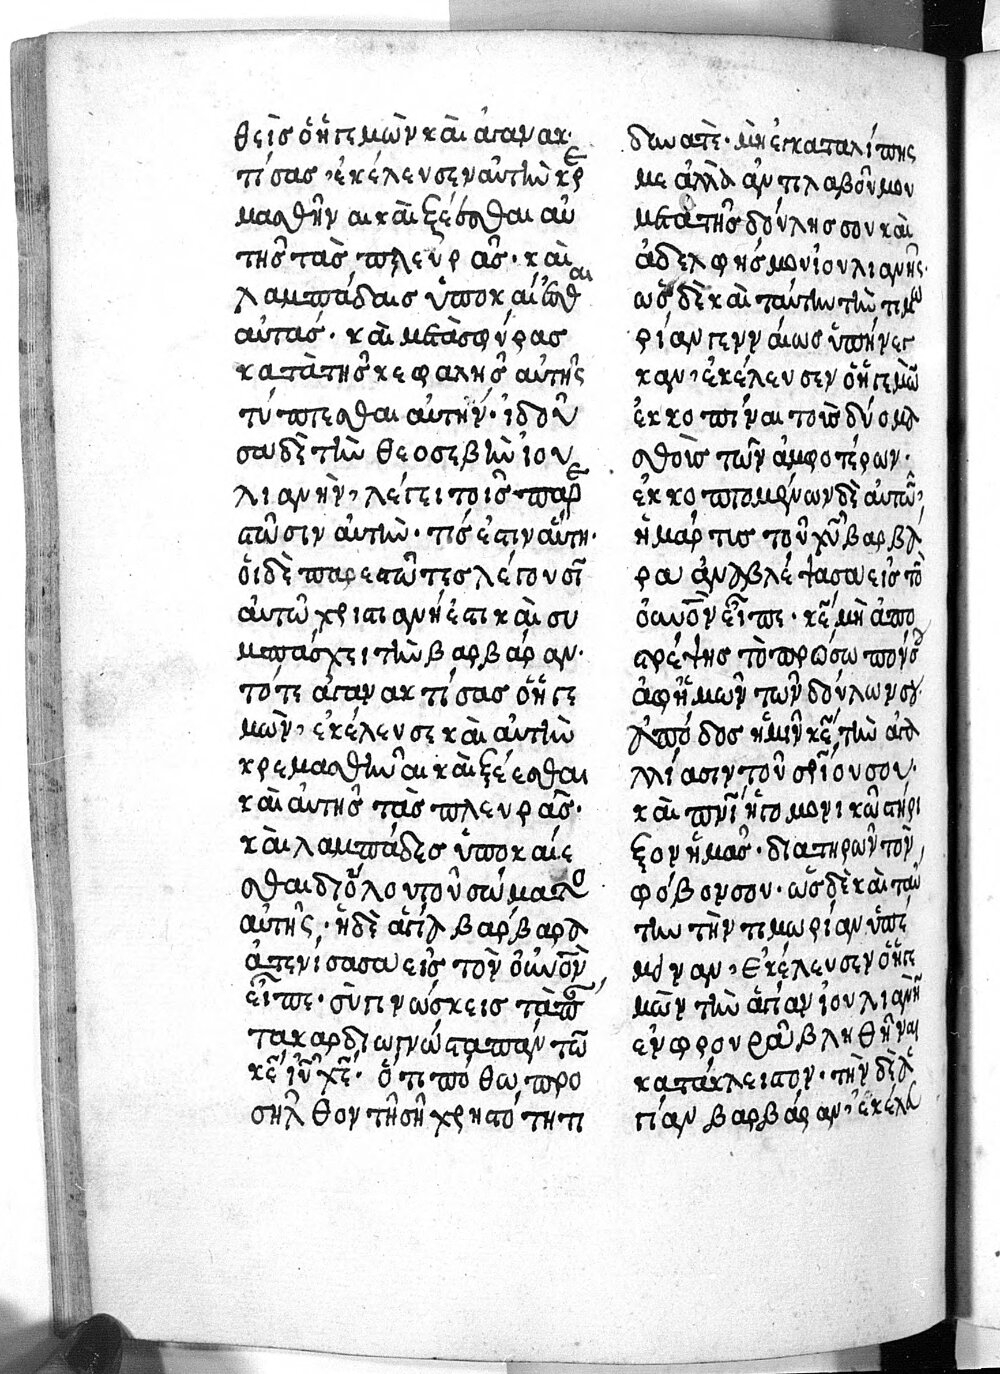 θεὶς ὁ ἡγεμὼν καὶ ἀγανακ
τίσας, ἐκέλευσεν αὐτὴν κρε
μασθῆναι καὶ ξέεσθαι αὐ
τῆς τὰς πλευρᾶς· καὶ
λαμπάδαις ὑποκαίεσθαι
αὐτάς· καὶ μετὰ σφύρας
κατὰ τῆς κεφαλῆς αὐτῆς
τύπτεσθαι αὐτήν· ἰδοῦ
σα δὲ τὴν θεοσεβὴν ἰου
λιανὴν, λέγει τοῖς παρε
στῶσιν αὐτὴν· τίς ἐστιν αὕτη·
οἱ δὲ παρεστῶτες λέγουσι
αὐτῶ χριστιανή ἐστι καὶ συ
μπάσχει τὴν βαρβάραν·
τότε ἀγανακτίσας ὁ ἡγε
μὼν, ἐκέλευσε καὶ αὐτὴν
κρεμασθῆναι καὶ ξέεσθαι
καὶ αὐτῆς τὰς πλευρᾶς·
καὶ λαμπάδες ὑποκαίε
σθαι δι ὅλου τοῦ σώματο
αὐτῆς· ἡ δὲ ἁγία βαρβάρα
ἀτενίσασα εἰς τὸν οὐνὸν
εἶπε· σὺ γινώσκεις τὰ π
τα καρδιωγνώστα πάντων
κε ιυ χε· ὅτι πόθω προ
σῆλθον τῆ σῆ χρηστότητι
δέσποτα· μὴ ἐγκαταλίπης
με ἀλλὰ ἀντιλαβοῦ μου
μετὰ τῆς δούλης σου καὶ
ἀδελφῆς μου ἰουλιανῆς·
ὡς δὲ καὶ ταύτην τὴν τιμω
ρίαν γενναίως ὑπήνεγ
καν, ἐκέλευσεν ὁ ἡγεμὼ
ἐκκοπῖναι τοὺς δύο μα
σθοὺς τῶν ἀμφοτέρων·
ἐκκοπτομένων δὲ αὐτῶ,
ἡ μάρτις τοῦ χυ βαρβά
ρα ἀναβλέψασα εἰς τὸ
οὐνὸν εἶπε· κε μὴ ἀπο
στρέψης τὸ πρόσωπόν σου
ἀφ ἡμῶν τῶν δούλων σου
ἀπόδος ἡμῖν κε τὴν ἀγα
λλίασιν τοῦ σριου σου·
καὶ πνι ἡγεμονικῶ στήρι
ξον ἡμᾶς· διατηρῶν τὸν
φόβον σου· ὡς δὲ καὶ ταύ
την τὴν τιμωρίαν ὑπέ
μειναν, ἐκέλευσεν ὁ ἡγε
μὼν τὴν ἁγίαν ἰουλιανὴ
ἐν φρουρᾶ βληθῆναι
κατάκλειστον· τὴν δὲ ἁ
γίαν βαρβάραν, ἐκέλευ